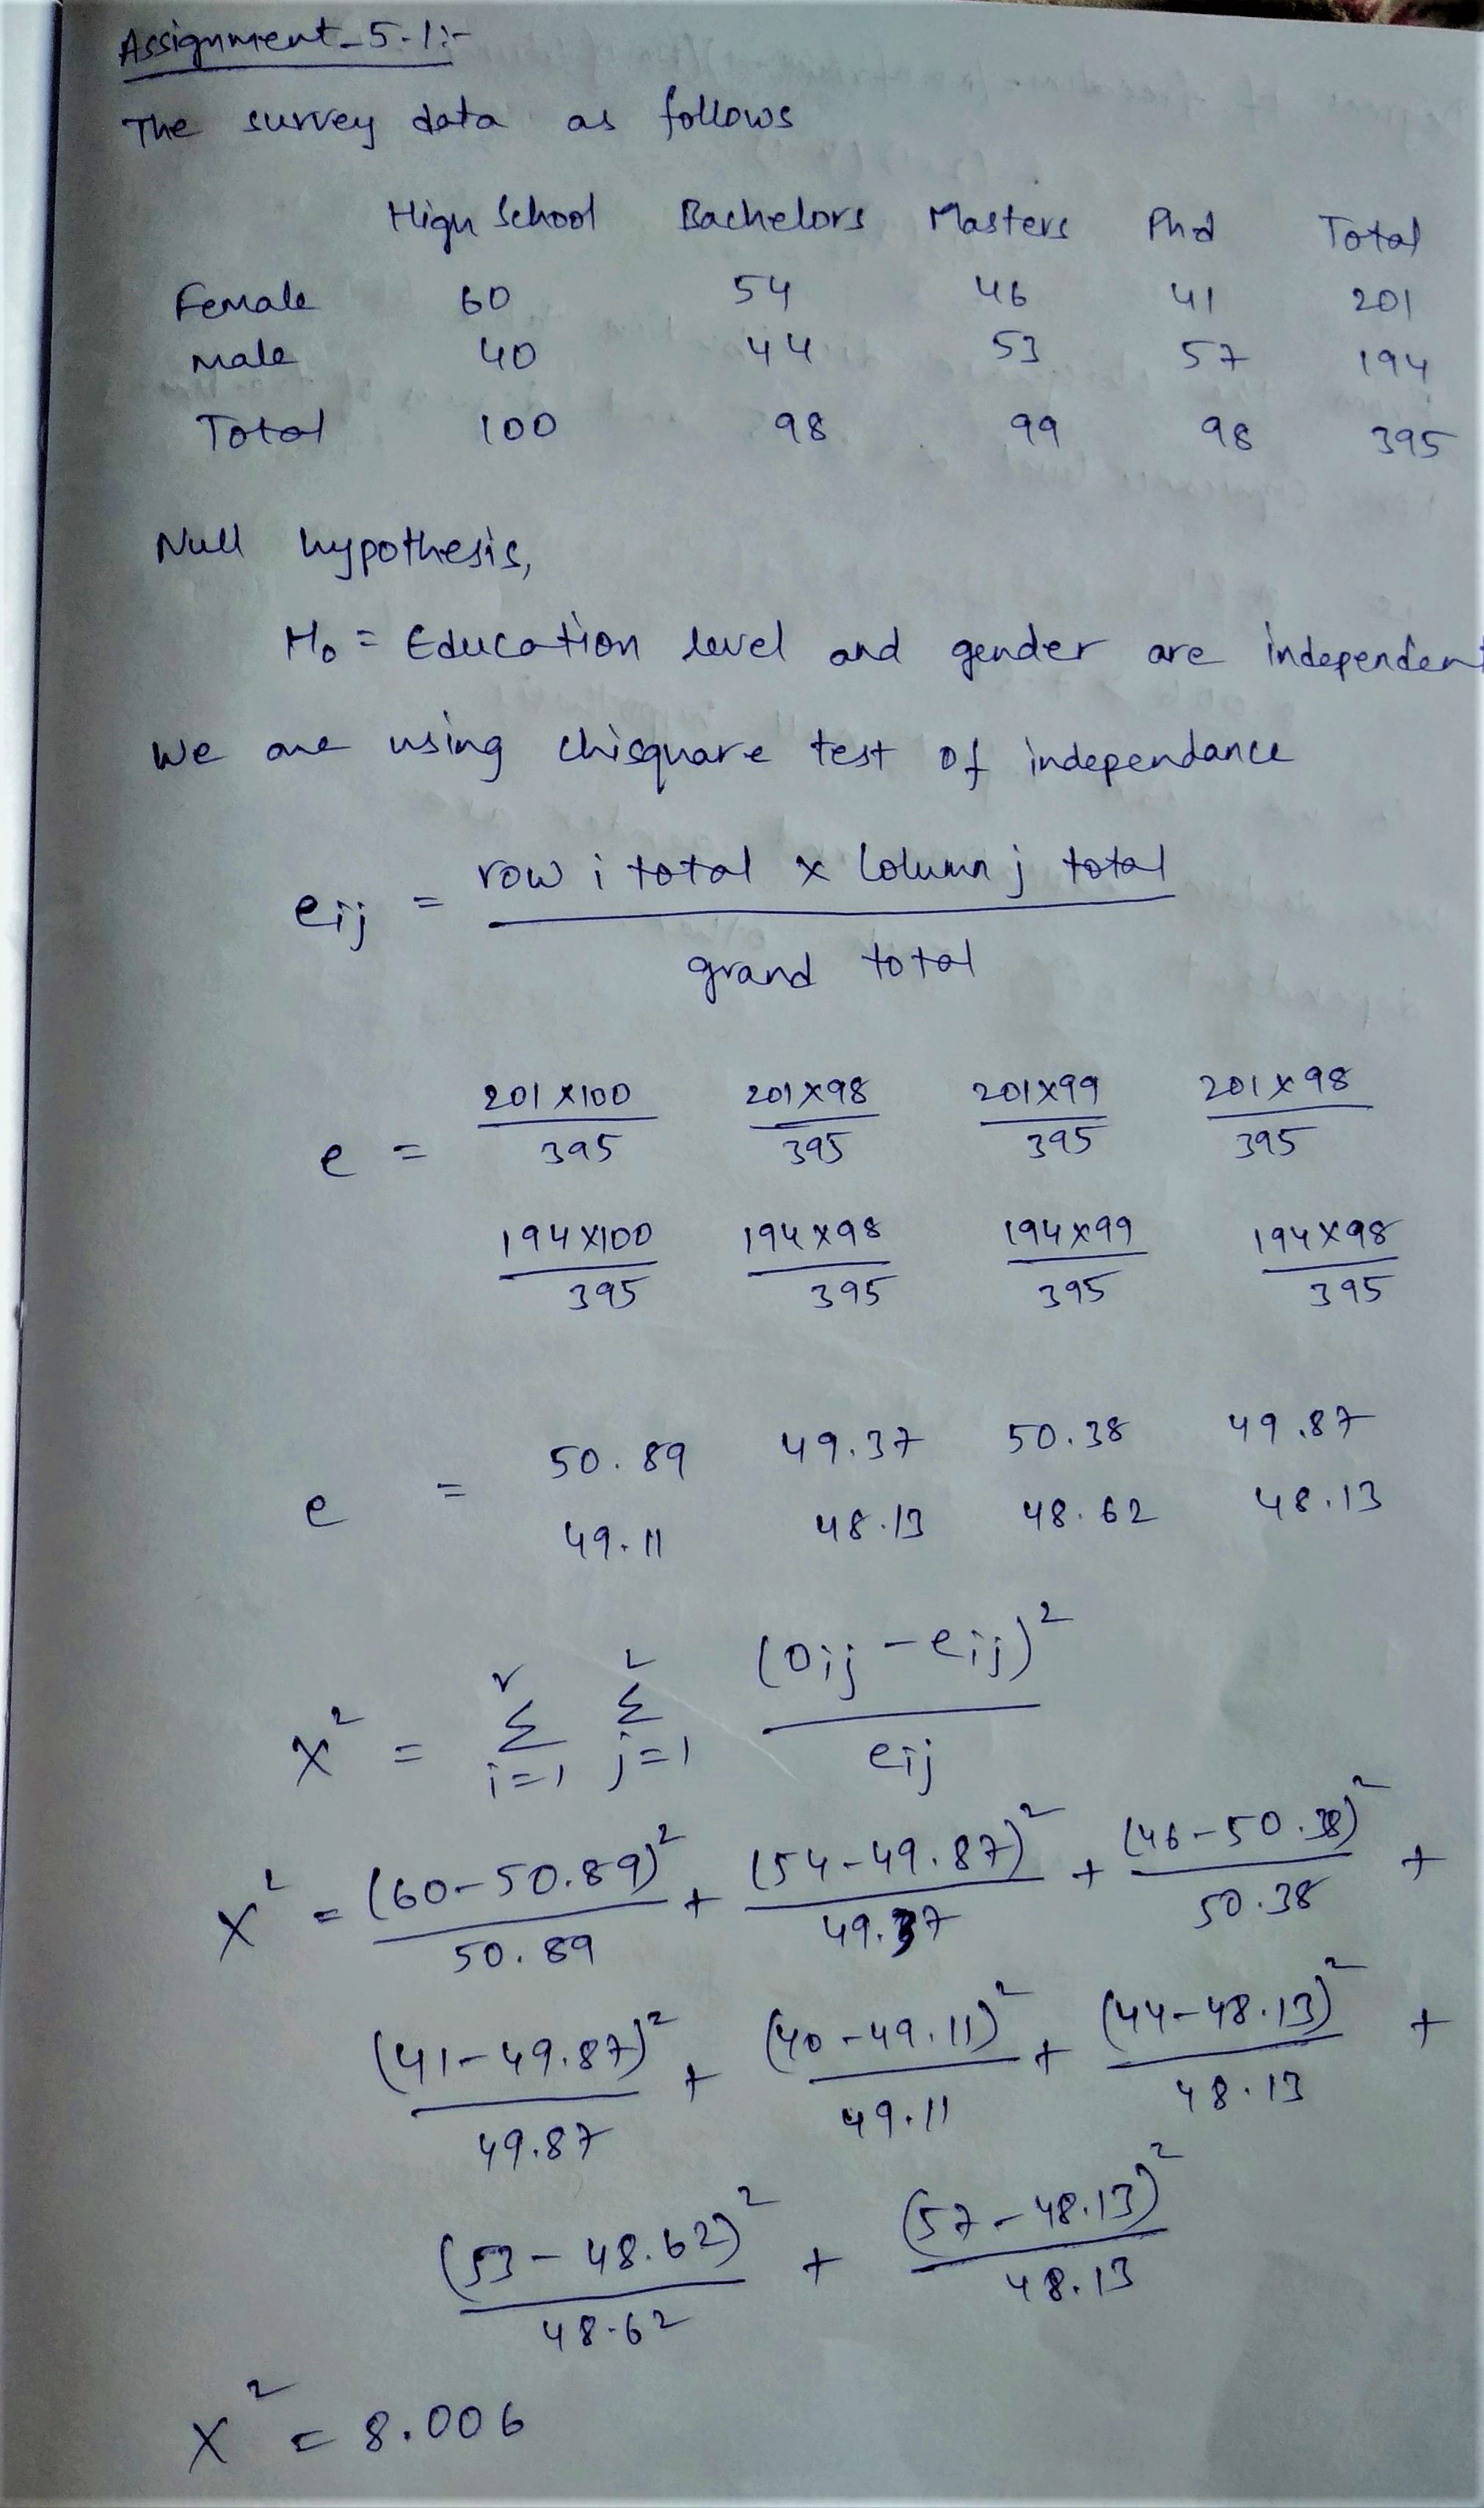 Assignment-5.1:-
The survey data as follows
High School Bachelors Masters Phd Total
Female 60 54 46 41 201
Male 40 44 53 57 194
Total 100 98 99 98 395
Null hypothesis,
H₀ = Education level and gender are independent
We are using chisquare test of independance
eij = row i total × Column j total
grand total
e = 201×100/395 201×98/395 201×99/395 201×98/395
194×100/395 194×98/395 194×99/395 194×98/395
e = 50.89 49.37 50.38 49.87
49.11 48.13 48.62 48.13
X² = r Σ i=1 c Σ j=1 (Oij - eij)² / eij
X² = (60-50.89)²/50.89 + (54-49.87)²/49.37 + (46-50.38)²/50.38 +
(41-49.87)²/49.87 + (40-49.11)²/49.11 + (44-48.13)²/48.13 +
(53-48.62)²/48.62 + (57-48.13)²/48.13
X² = 8.006